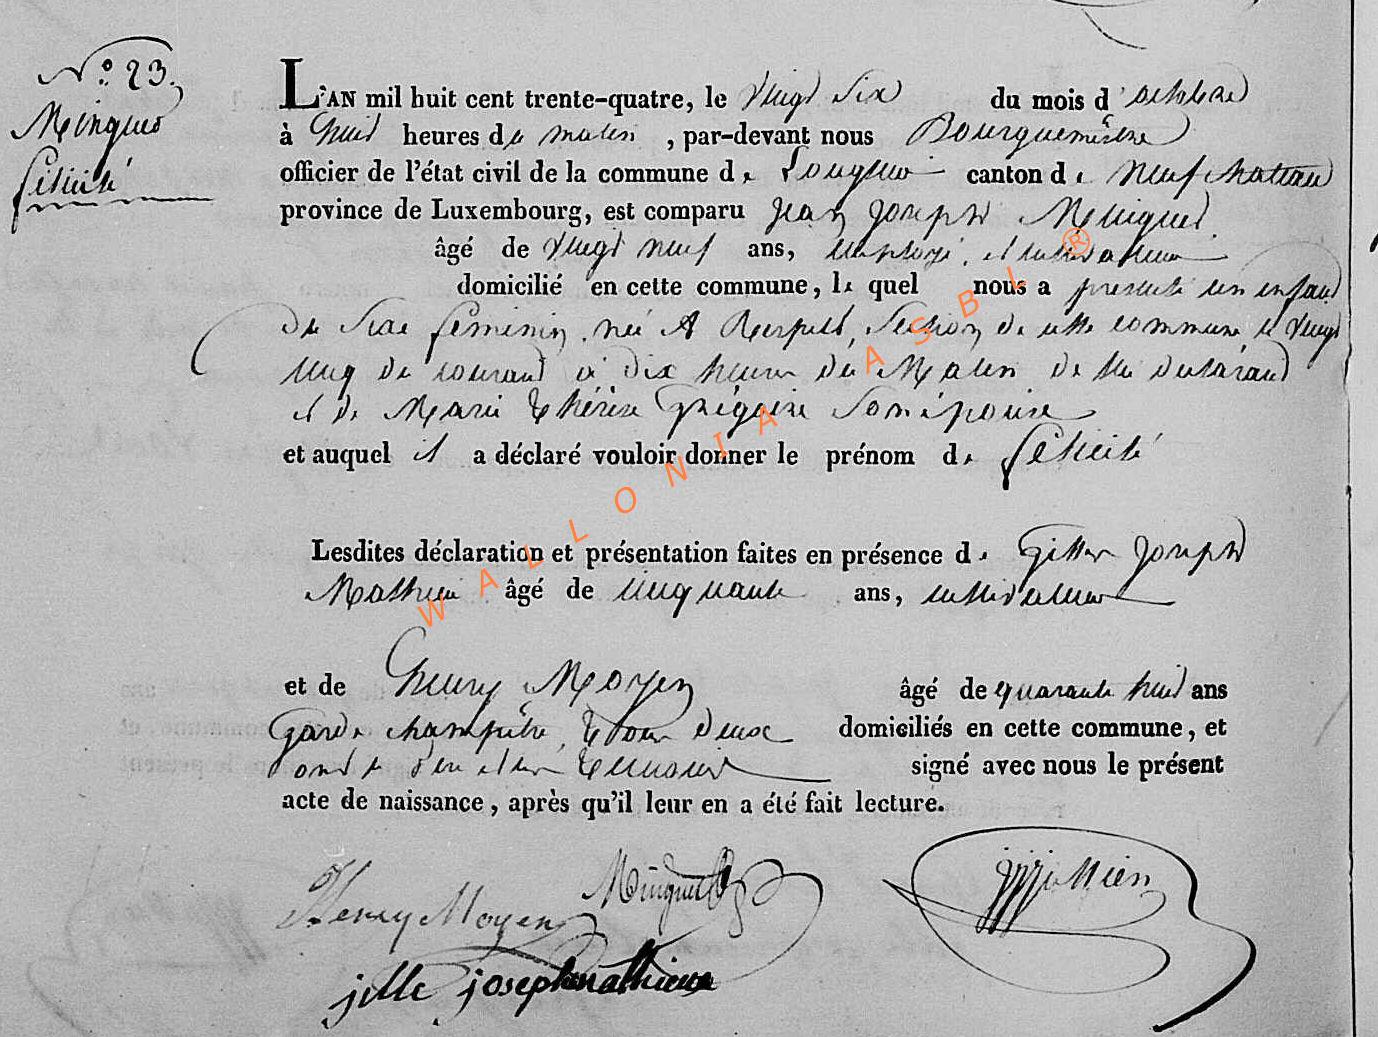 N.° 23.
Minguet
Félicité
L'AN mil huit cent trente-quatre, le vingt six du mois d'octobre
à huit heures du matin, par-devant nous Bourguemestre
officier de l'état civil de la commune de Longlier canton de Neufchateau
province de Luxembourg, est comparu Jean Joseph Minguet
âgé de vingt neuf ans, employé, et cultivateur
domicilié en cette commune, le quel nous a presenté un enfant
du sexe feminin, née A Respelt, section de cette commune le vingt
cinq du courant à dix heures du Matin de lui déclarant
et de Marie Thérèse Grégoire son épouse
et auquel il a déclaré vouloir donner le prénom de félicité
Lesdites déclaration et présentation faites en présence de Gille Joseph
Mathieu âgé de cinquante ans, cultivateur
et de Henry Moyen âgé de quarante huit ans
Garde champêtre, Tous deux domiciliés en cette commune, et
ont le père et les Temoins signé avec nous le présent
acte de naissance, après qu'il leur en a été fait lecture.
Henry Moyen Minguet
jille joseph mathieux
WALLONIA ASBL ®